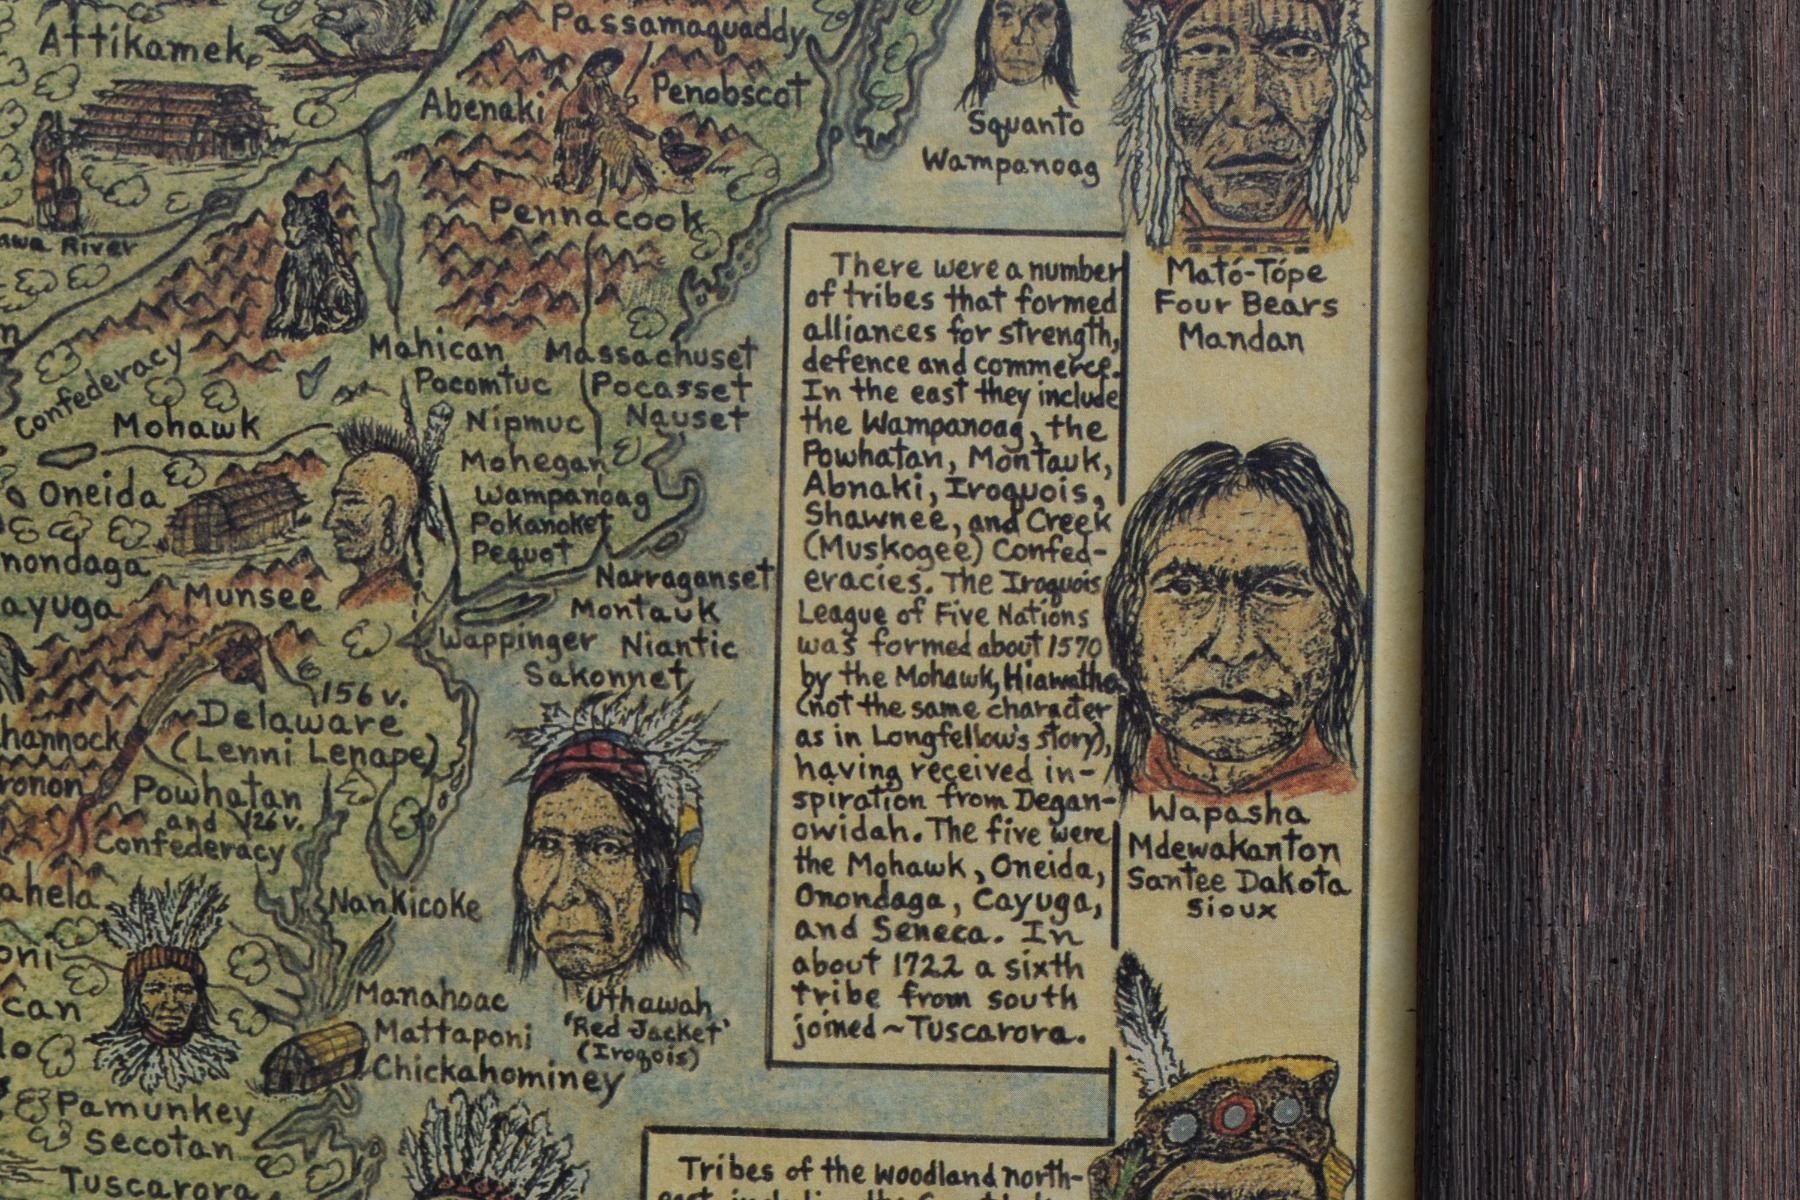 Passamaquoddy
Attikamek
Abenaki
Penobscot
Squanto
Wampanoag
Pennacook
River
Mató-Tópe
Four Bears
Mandan
There were a number
of tribes that formed
alliances for strength,
defence and commerce.
In the east they include
the Wampanoag, the
Powhatan, Montauk,
Abnaki, Iroquois,
Shawnee, and Creek
(Muskogee) Confed-
eracies. The Iroquois
League of Five Nations
was formed about 1570
by the Mohawk, Hiawatha
(not the same character
as in Longfellow's story),
having received in-
spiration from Degan-
owidah. The five were
the Mohawk, Oneida,
Onondaga, Cayuga,
and Seneca. In
about 1722 a sixth
tribe from south
joined ~ Tuscarora.
Mahican
Massachuset
Pocomtuc
Pocasset
Confederacy
Mohawk
Nipmuc
Nauset
Mohegan
Oneida
Wampanoag
Pokanoket
Pequot
nondaga
Narraganset
ayuga
Munsee
Montauk
Wappinger
Niantic
Sakonnet
156 v.
Delaware
(Lenni Lenape)
hannock
ronon
Powhatan
and 126 v.
Confederacy
Wapasha
Mdewakanton
Santee Dakota
Sioux
ahela
Nankicoke
oni
can
Manahoac
Uthawah
'Red Jacket'
(Iroqois)
Mattaponi
lo
Chickahominey
Pamunkey
Secotan
Tuscarora
Tribes of the woodland north-